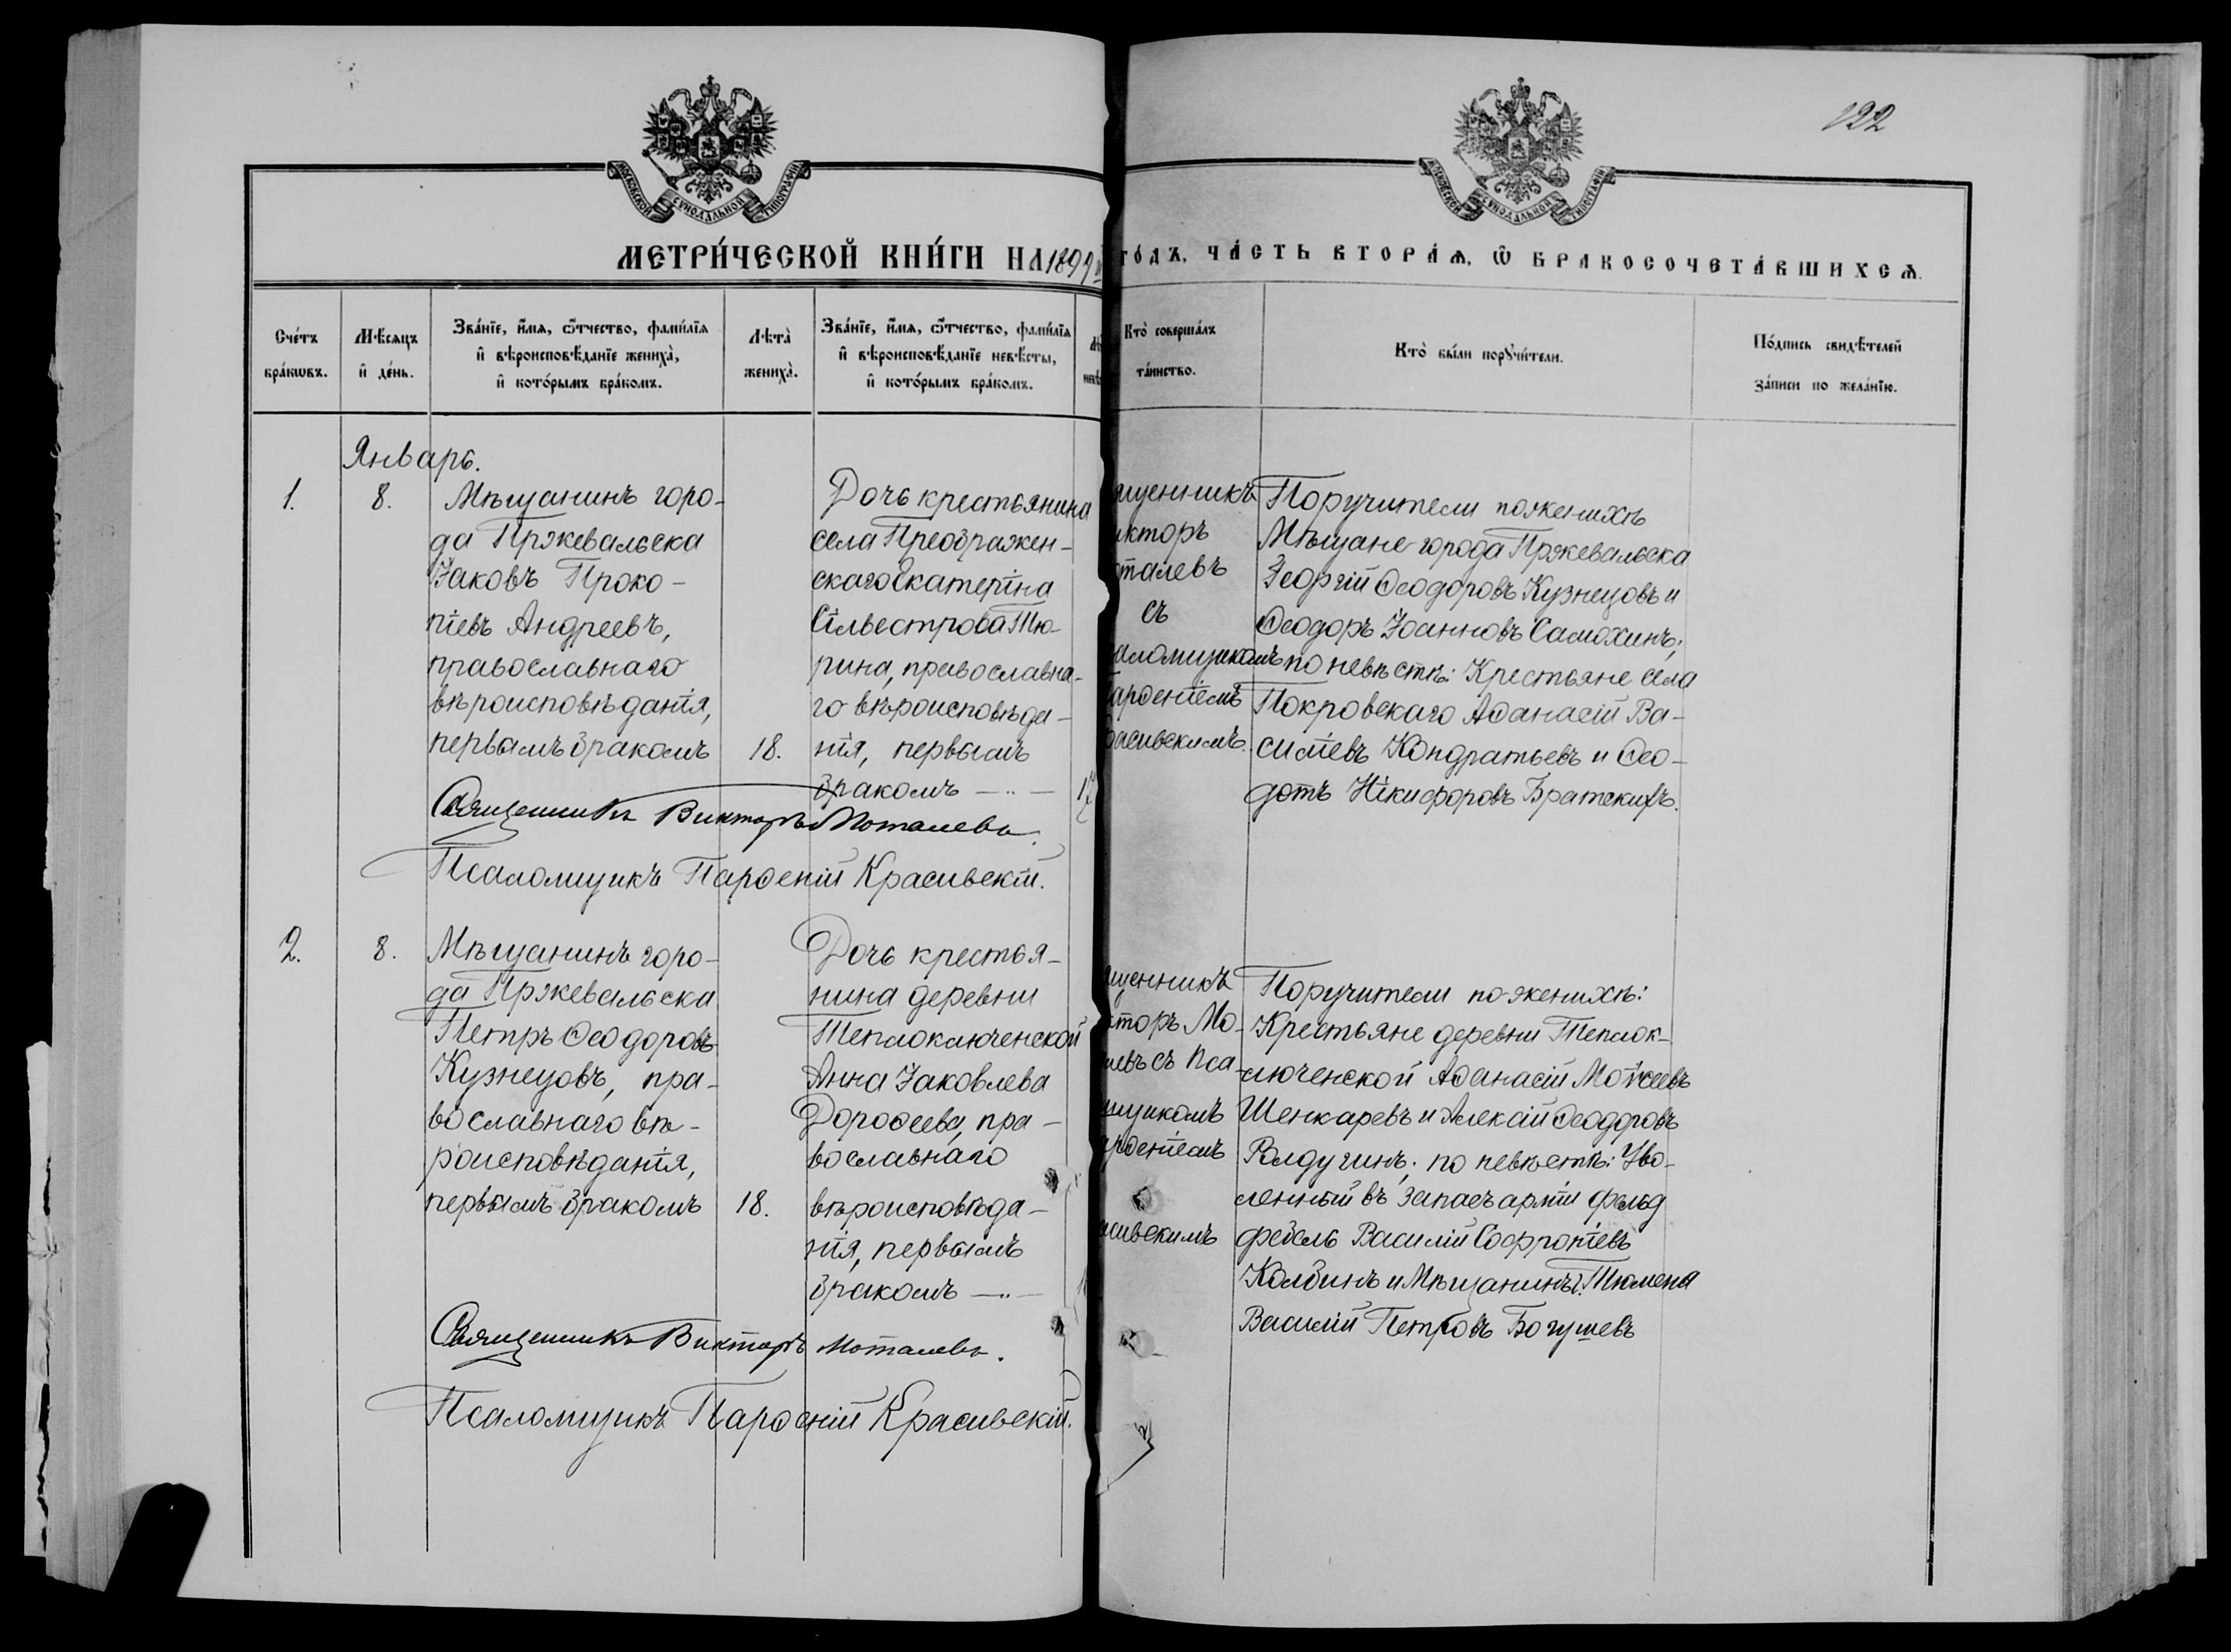 122
МОСКОВСКОЙ СѴНОДАЛЬНОЙ ТИПОГРАФІИ
МОСКОВСКОЙ СѴНОДАЛЬНОЙ ТИПОГРАФІИ
МЕТРИ́ЧЕСКОЙ КНИ́ГИ НА 1899
ГО́ДЪ, ЧА́СТЬ ВТОРА́Ѧ, Ѡ҆ БРАКОСОЧЕТА́ВШИХСѦ.
Сче́тъ
бра́кѡвъ.
Мѣ́сѧцъ
и҆ де́нь.
Зва́нїе, и҆́мѧ, ѻ҆́тчество, фами́лїѧ
и҆ вѣроисповѣ́данїе жениха̀,
и҆ кото́рымъ бра́комъ.
Лѣта̀
жениха̀.
Зва́нїе, и҆́мѧ, ѻ҆́тчество, фами́лїѧ
и҆ вѣроисповѣ́данїе невѣ́сты,
и҆ кото́рымъ бра́комъ.
Кто̀ соверша́лъ
та́инство.
Кто̀ бы́ли порꙋчи́тели.
По́дпись свидѣ́телей
за́писи по жела́нїю.
Январь.
1.
8.
Мѣщанинъ горо-
да Пржевальска
Іаковъ Проко-
піевъ Андреевъ,
православнаго
вѣроисповѣданія,
первымъ бракомъ
18.
Дочь крестьянина
села Преображен-
скаго Екатерина
Сільвестрова Тю-
рина, православна-
го вѣроисповѣда-
нія, первымъ
бракомъ —..—
17
ященникъ
икторъ
талевъ
съ
аломщикомъ
арѳеніемъ
расивскимъ.
Поручители по женихѣ
Мѣщане города Пржевальска
Георгій Ѳеодоровъ Кузнецовъ и
Ѳеодоръ Іоанновъ Самохинъ;
по невѣстѣ: Крестьяне села
Покровскаго Аѳанасій Ва-
силіевъ Кондратьевъ и Ѳео-
дотъ Нікифоровъ Братскихъ.
Священникъ Викторъ Моталевъ.
Псаломщикъ Парѳеній Красивскій.
2.
8.
Мѣщанинъ горо-
да Пржевальска
Петръ Ѳеодоровъ
Кузнецовъ, пра-
вославнаго вѣ-
роисповѣданія,
первымъ бракомъ
18.
Дочь крестья-
нина деревни
Теплоключенской
Анна Іаковлева
Дороѳеева, пра-
вославнаго
вѣроисповѣда-
нія, первымъ
бракомъ —..—
ященникъ
кторъ Мо-
левъ съ Пса-
мщикомъ
рѳеніемъ
асивскимъ
Поручители по женихѣ:
Крестьяне деревни Теплок-
люченской Аѳанасій Моѵсеевъ
Шенкаревъ и Алексій Ѳеодоровъ
Ролдугинъ; по невѣстѣ: Уво-
ленный въ запасъ арміи фельд
фебель Василій Софроніевъ
Колбинъ и Мѣщанинъ г. Тюмена
Василій Петровъ Богушевъ
Священникъ Викторъ Моталевъ.
Псаломщикъ Парѳеній Красивскій.